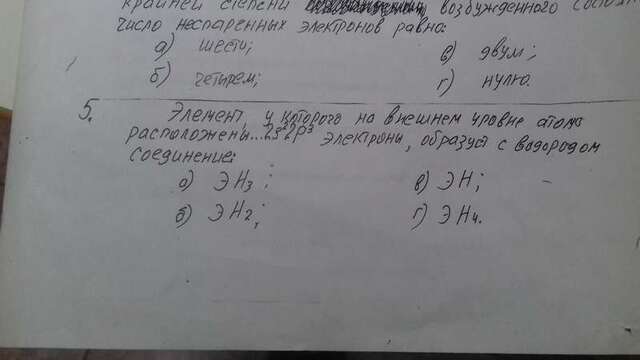 крайней степени возбужденного состоян
число неспаренных электронов равно:
а) шести; в) двум;
б) четырем; г) нулю.
5. Элемент, у которого на внешнем уровне атома
расположены...2s²2p³ электроны, образует с водородом
соединение:
а) ЭН₃; в) ЭН;
б) ЭН₂; г) ЭН₄.